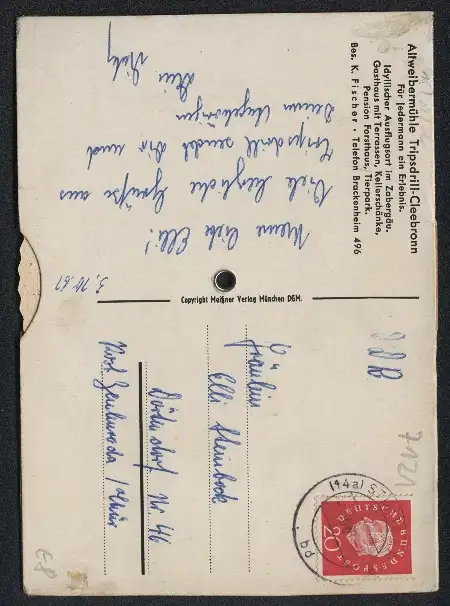 Altweibermühle Tripsdrill-Cleebronn
Für Jedermann ein Erlebnis.
Idyllischer Ausflugsort im Zabergäu.
Gasthaus mit Terrassen, Kellerschänke,
Pension Forsthaus, Tierpark.
Bes. K. Fischer • Telefon Brackenheim 496
3. 10. 61
Meine liebe Elli!
Viele herzliche Grüße aus
Tripsdrill sendet Dir und
Deinen Angehörigen
Dein
Copyright Meißner Verlag München DGM.
DDR
7121
Fräulein
Elli Steinbock
Nr. 46
Post
(14a) ST
DEUTSCHE BUNDESPOST
20